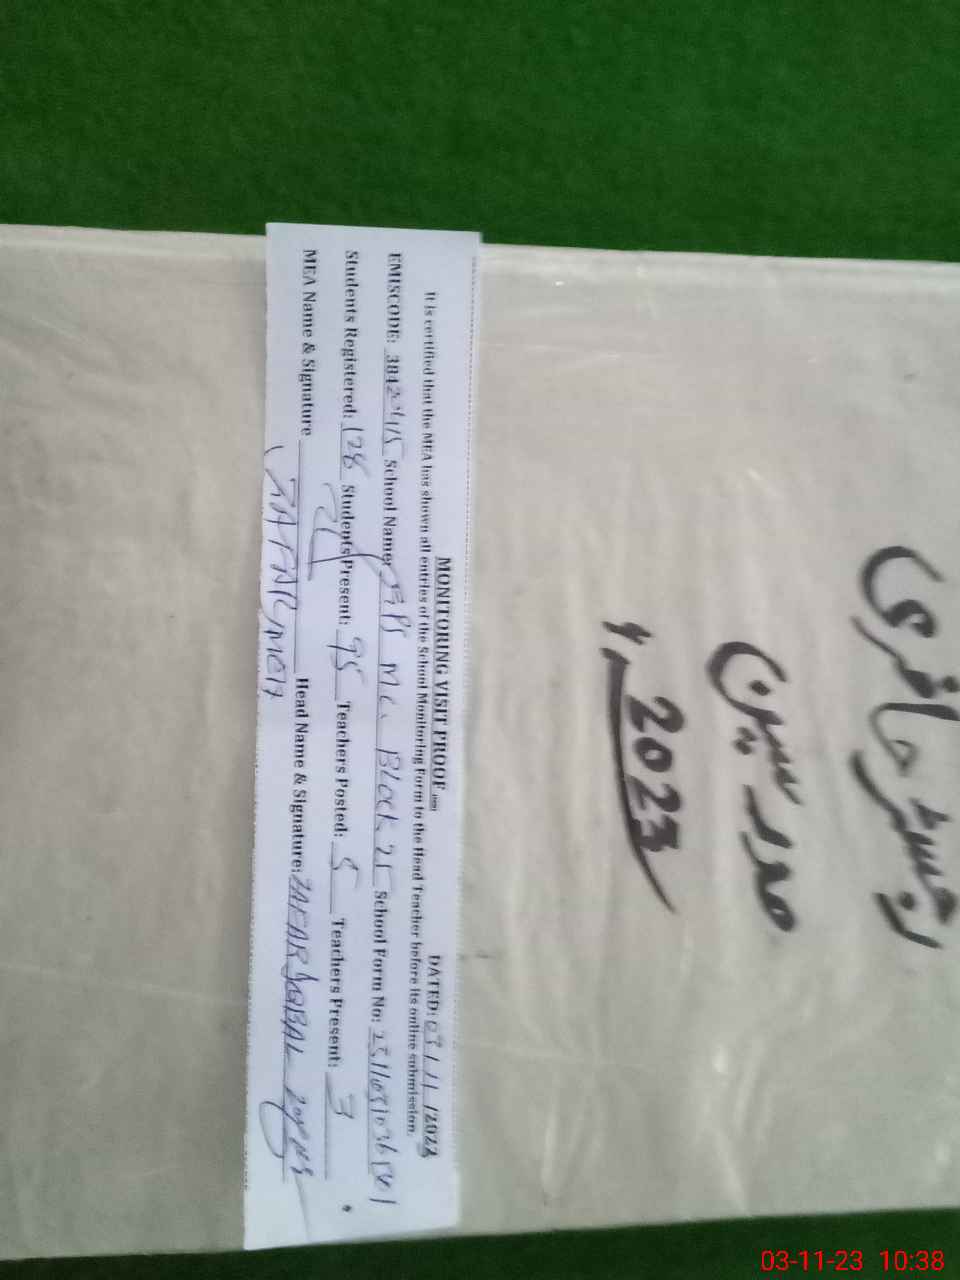 MONITORING VISIT PROOF
DATED: 03/11/2023
It is certified that the MEA has shown all entries of the School Monitoring Form to the Head Teacher before its online submission.
EMISCODE: School Name: GPS M.C. Block 21 School Form No:
Students Registered: 128 Students Present: 95 Teachers Posted: 5 Teachers Present: 3
MEA Name & Signature Head Name & Signature: ZAFAR IQBAL
رجسٹر حاضری
مدرسین
2023
03-11-23 10:38